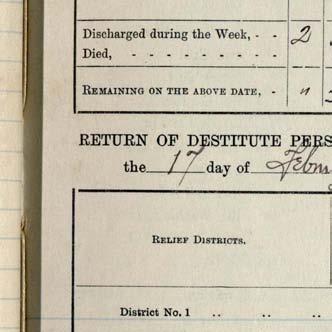 Discharged during the Week, - - 2
Died, - - - - - - - - -
REMAINING ON THE ABOVE DATE, - "
RETURN OF DESTITUTE PERS
the 17 day of Febru
RELIEF DISTRICTS.
District No. 1 .. .. ..